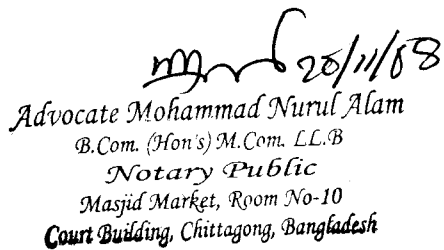 20/11/08
Advocate Mohammad Nurul Alam
B.Com. (Hon's) M.Com. LL.B
Notary Public
Masjid Market, Room No-10
Court Building, Chittagong, Bangladesh